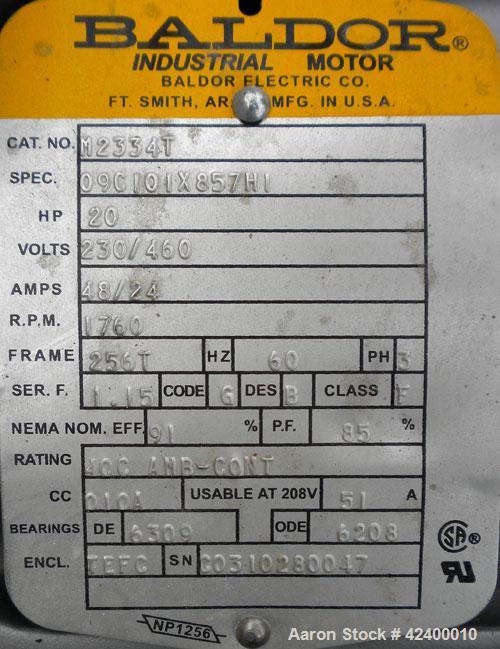 BALDOR®
INDUSTRIAL MOTOR
BALDOR ELECTRIC CO.
FT. SMITH, AR MFG. IN U.S.A.
CAT. NO. M2334T
SPEC. 09C101X857H1
HP 20
VOLTS 230/460
AMPS 48/24
R.P.M. 1760
FRAME 256T HZ 60 PH 3
SER. F. 1.15 CODE G DES B CLASS F
NEMA NOM. EFF. 91 % P.F. 85 %
RATING 40C AMB-CONT
CC 010A USABLE AT 208V 51 A
BEARINGS DE 6309 ODE 6208
ENCL. TEFC SN C0310280047
NP1256
Aaron Stock # 42400010